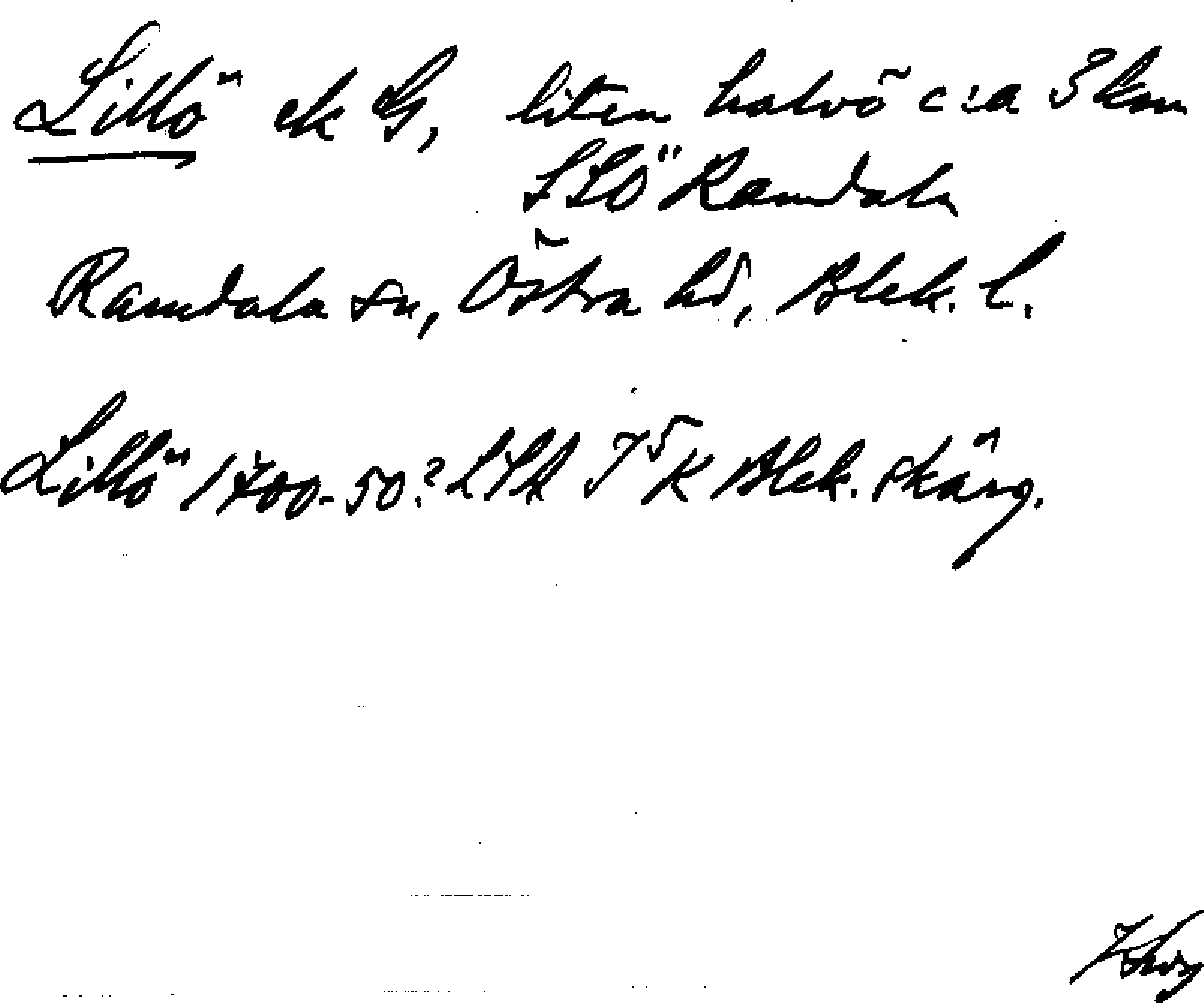 Lillö ek G, liten halvö c:a 3 km
SSÖ Ramdala
Ramdala sn, Östra hd, Blek. l.
Lillö 1700-50? LSA J⁵ K Blek. skärg.